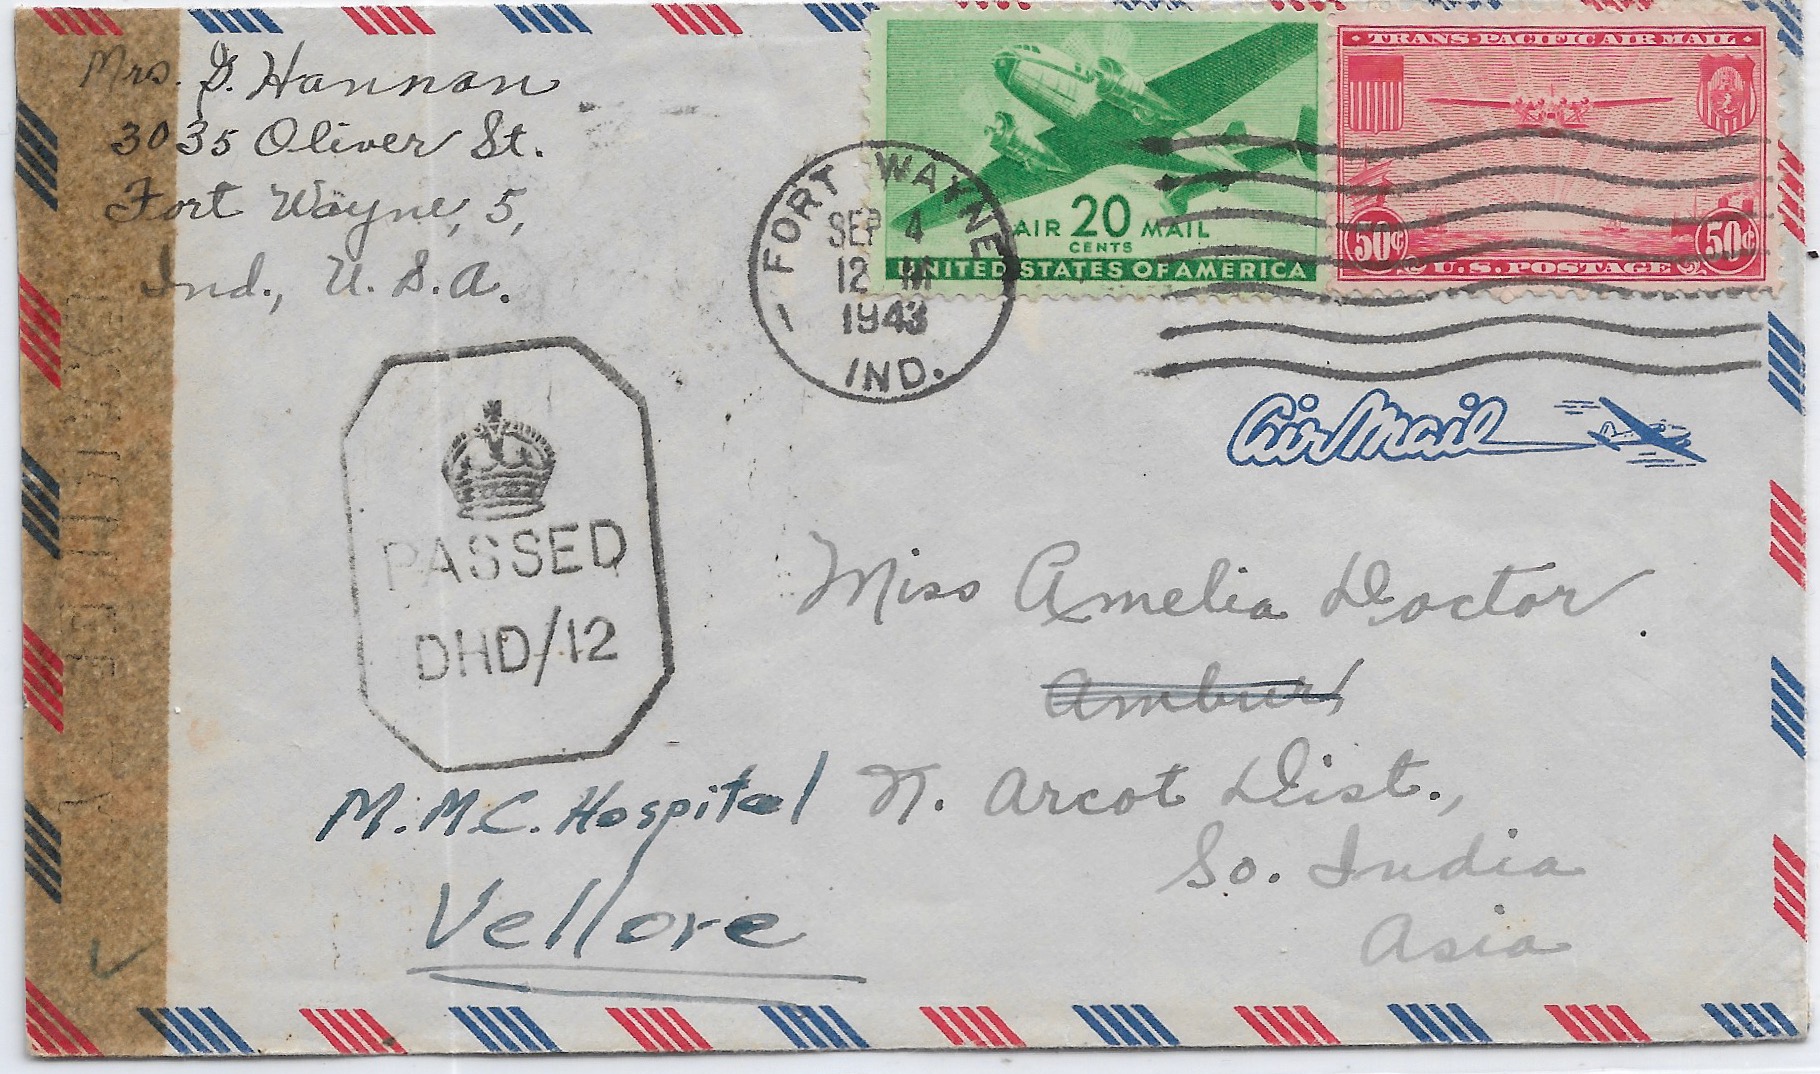 Mrs. G. Hannon
3035 Oliver St.
Fort Wayne, 5,
Ind., U. S. A.
AIR 20 MAIL
CENTS
UNITED STATES OF AMERICA
TRANS-PACIFIC AIR MAIL
50¢ 50¢
U.S. POSTAGE
FORT WAYNE
SEP 4
12 M
1943
1
IND.
Air Mail
PASSED
DHD/12
Miss Amelia Doctor
Ambur,
M.M.C. Hospital N. Arcot Dist.,
Vellore
So. India
Asia